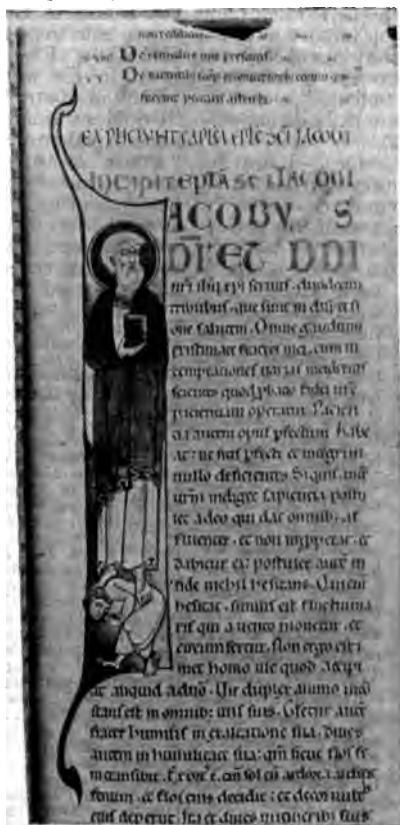 EXPLICIUNT CAPLA EPLE SCI IACOBI
INCIPIT EPLA SCI IACOBI
IACOBUS
DI ET DNI
nri ihu xpi seruus. duodecim
tribubus que sunt in dispersi
one salutem. Omne gaudium
existimate fratres mei. cum in
temptationes uarias incideritis
scientes quod pbatio fidei ure
pacientiam operatur. Pacien
cia autem opus pfectum habe
at: ut sitis pfecti et integri in
nullo deficientes. Siquis aut
urm indiget sapiencia postu
let a deo qui dat omnib; af
fluenter. et non inpperat. et
dabitur ei: postulet aute in
fide nichil hesitans. Qui eni
hesitat. similis est fluctui ma
ris qui a uento mouetur. et
circumfertur. Non ergo esti
met homo ille quod accipi
at aliquid a dno. Uir duplex animo inco
stans est in omnib; uiis suis. Glietur aute
frater humilis in exaltatione sua. diues
autem in humilitate sua: qm sicut flos fe
ni transibit. Exort e. eni sol cu ardore. et arefecit
fenum. et flos eius decidit: et decor uultus
eius deperiit. Ita et diues in itinerib; suis